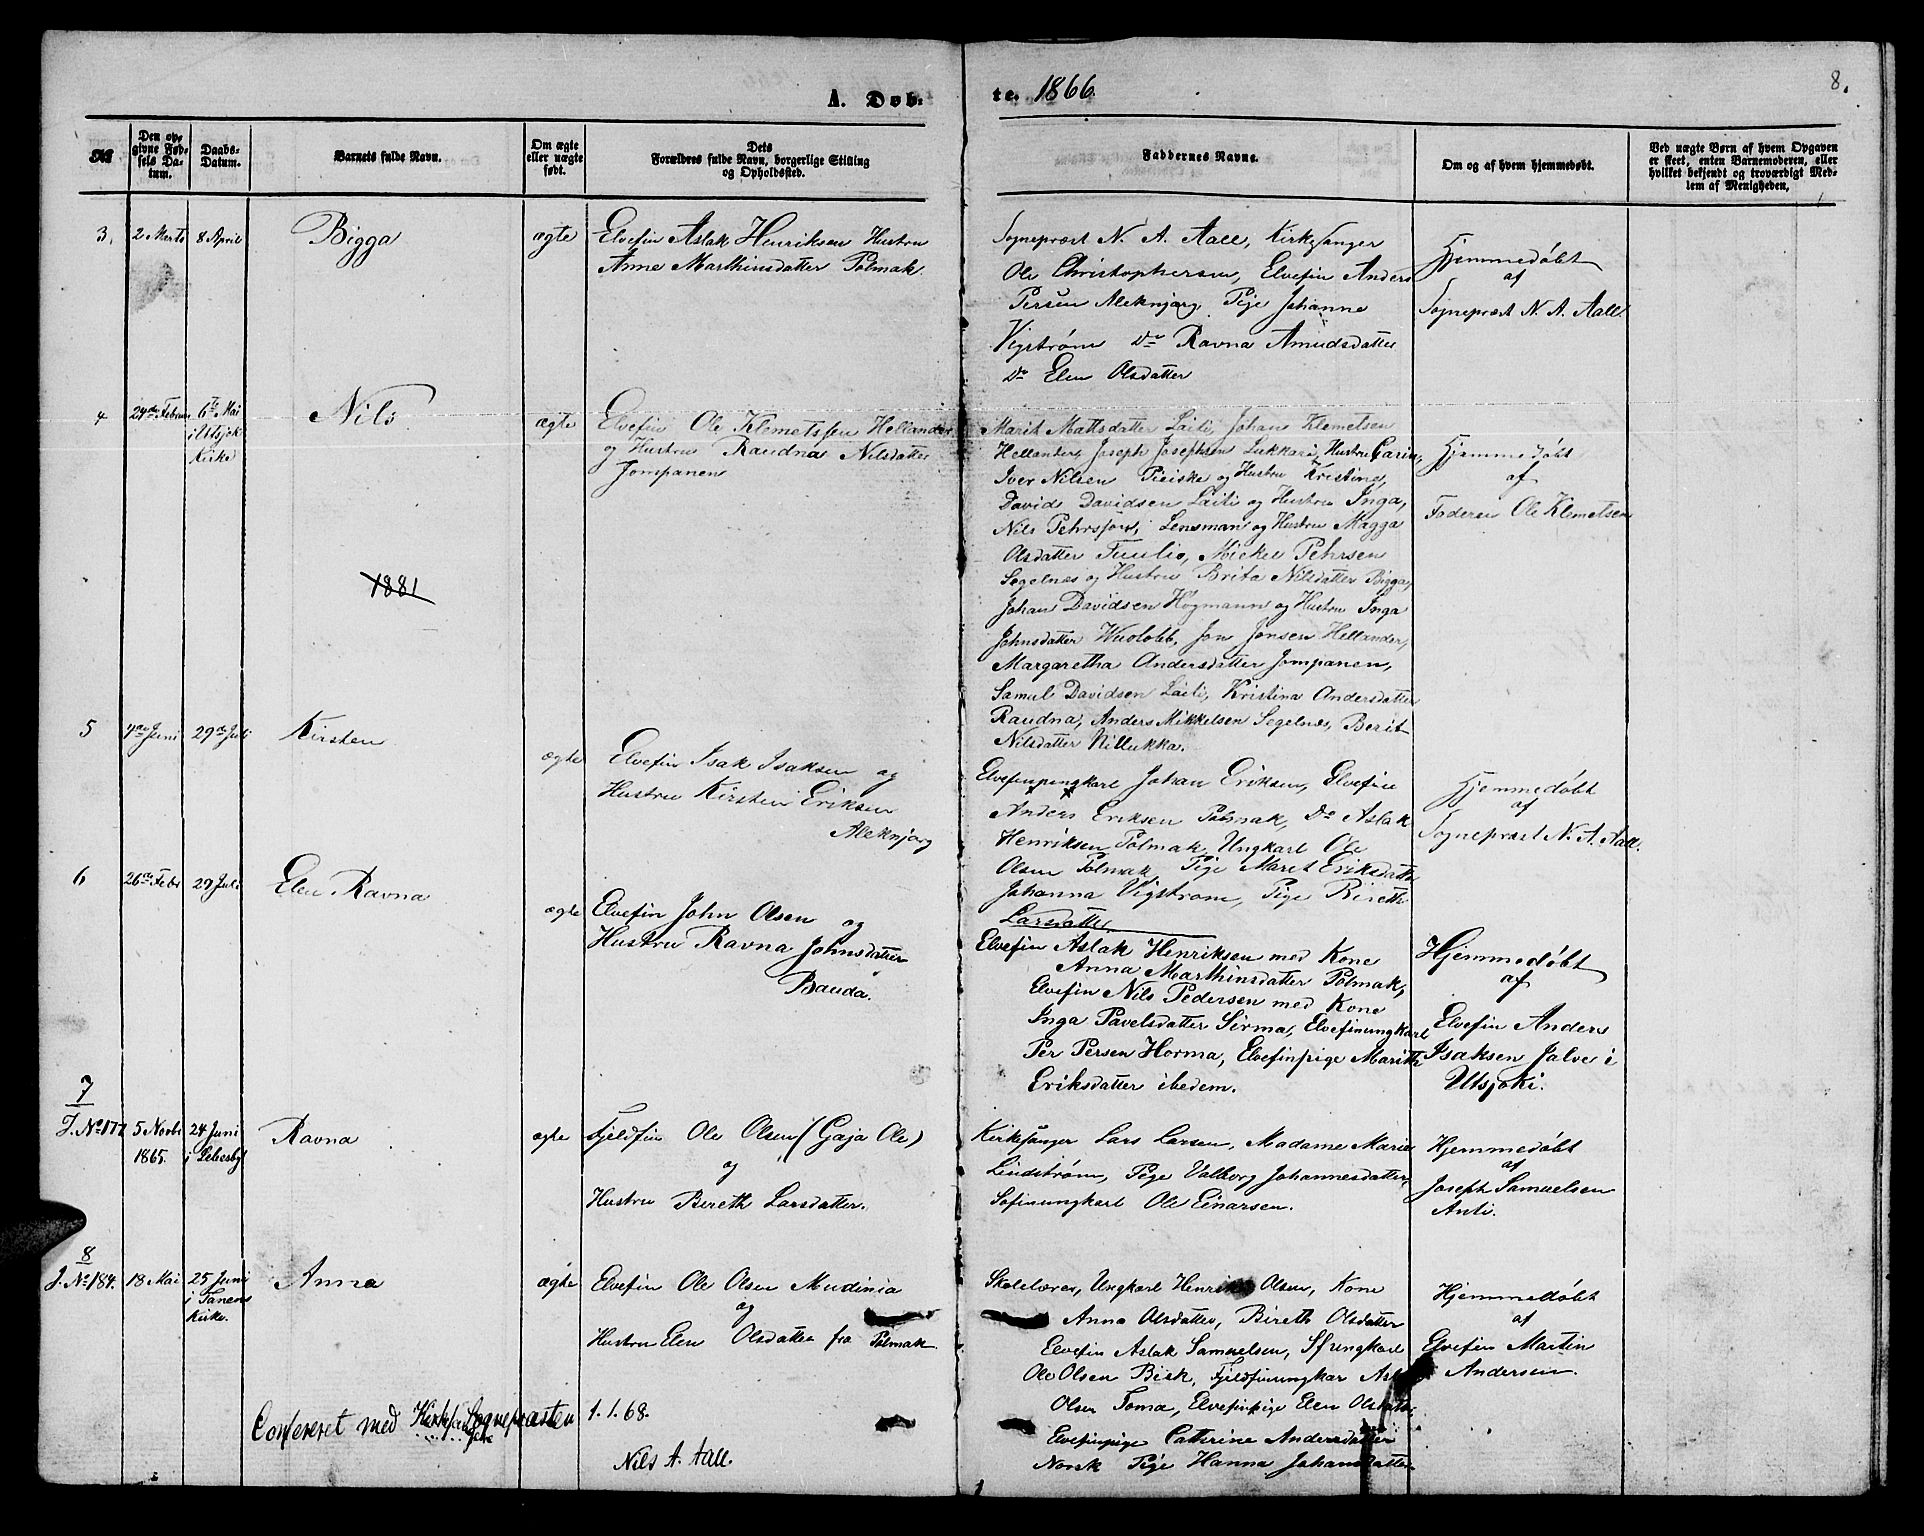 A. Døb-
te. 1866.
8.
No
Den op-
givne Fød-
sels Da-
tum.
Daabs-
Datum.
Barnets fulde Navn.
Om ægte
eller uægte
født.
Dets
Forældres fulde Navn, borgerlige Stilling
og Opholdssted.
Faddernes Navne.
Om og af hvem hjemmedøbt.
Ved uægte Børn af hvem Opgaven
er skeet, enten Barnemoderen, eller
hvilket bekjendt og troværdigt Med-
lem af Menigheden.
3.
2 Marts
8 April
Bigga
ægte
Elvefin Aslak Henriksen Hustru
Anne Marthinsdatter Polmak.
Sognepræst N. A. Aall, Kirkesanger
Ole Christophersen, Elvefin Anders
Persen Aleknjarg, Pige Johanne
Vigstrøm Do Ravna Amudsdatter
Do Elen Olsdatter
Hjemmedøbt
af
Sognepræst N. A. Aall.
4
24de Februar
6te Mai
i Utsjok
Kirke
Nils
1881
ægte
Elvefin Ole Klemetssen Hellander
og Hustru Raudna Nilsdatter
Jompanen
Marit Mattsdatter Laiti, Johan Klemetsen
Hellander, Joseph Josephsen Lukkari, Hustru Carin,
Iver Nilsen Pieiske og Hustru Kristine,
David Davidsen Laiti og Hustru Inga,
Nils Pehrsson, Lensman og Hustru Magga
Olsdatter Tuulio, Mickel Pehrsen
Segelnæs og Hustru Brita Nilsdatter Bigga,
Johan Davidsen Högmann og Hustru Inga
Johnsdatter Wuolobb, Jon Jonsen Hellander,
Margaretha Andersdatter Jompanen,
Samul Davidsen Laiti, Kristina Andersdatter
Raudna, Anders Mikkelsen Segelnæs, Berit
Nilsdatter Nillukka.
Hjemmedøbt
af
Faderen Ole Klemetsen
5
4de Juni
29de Juli
Kirsten
ægte
Elvefin Isak Isaksen og
Hustru Kirsten Eriksen
Aleknjarg
Elvefinpungkarl Johan Eriksen, Elvefin
Anders Eriksen Polmak, Do Aslak
Henriksen Polmak, Ungkarl Ole
Olsen Polmak, Pige Maret Eriksdatter
Johanna Vigstrøm, Pige Bireth
Larsdatter.
Hjemmedøbt
af
Sognepræst N. A. Aall.
6
26de Febr
29 Juli
Elen Ravna
ægte
Elvefin John Olsen og
Hustru Ravna Johnsdatter
Bauda.
Elvefin Aslak Henriksen med Kone
Anna Marthinsdatter Polmak,
Elvefin Nils Pedersen med Kone
Inga Pavelsdatter Sirma, Elvefinungkarl
Per Persen Horma, Elvefinpige Marith
Eriksdatter ibedem.
Hjemmedøbt
af
Elvefin Anders
Isaksen Jalve i
Utsjoki.
7
J. No 177
5 Novbr
1865.
24 Juni
i Lebesby
Ravna
ægte
Fjeldfin Ole Olsen (Gaja Ole)
og
Hustru Bireth Larsdatter.
Kirkesanger Lars Larsen, Madame Marie
Lindstrøm, Pige Valborg Johannesdatter,
Søfinungkarl Ole Einarsen.
Hjemmedøbt
af
Joseph Samuelsen
Anti.
8
J. No 184.
18 Mai
25 Juni
i Tanens
Kirke.
Anna
ægte
Elvefin Ole Olsen Mudinia
og
Hustru Elen Olsdatter fra Polmak.
Skolelærer, Ungkarl Henrik Olsen, Kone
Anna Olsdatter, Bireth Olsdatter
Elvefin Aslak Samuelsen, Sfungkarl
Ole Olsen Bisk, Fjeldfinungkar
Olsen Toma, Elvefinpige Elen Olsdatter,
Elvefinpige Cathrine Andersdatter
Norsk Pige Hanna Johansdatter
Hjemmedøbt
af
Elvefin Martin
Andersen.
Confereret med Sognepræsten 1.1.68.
Nils A. Aall.